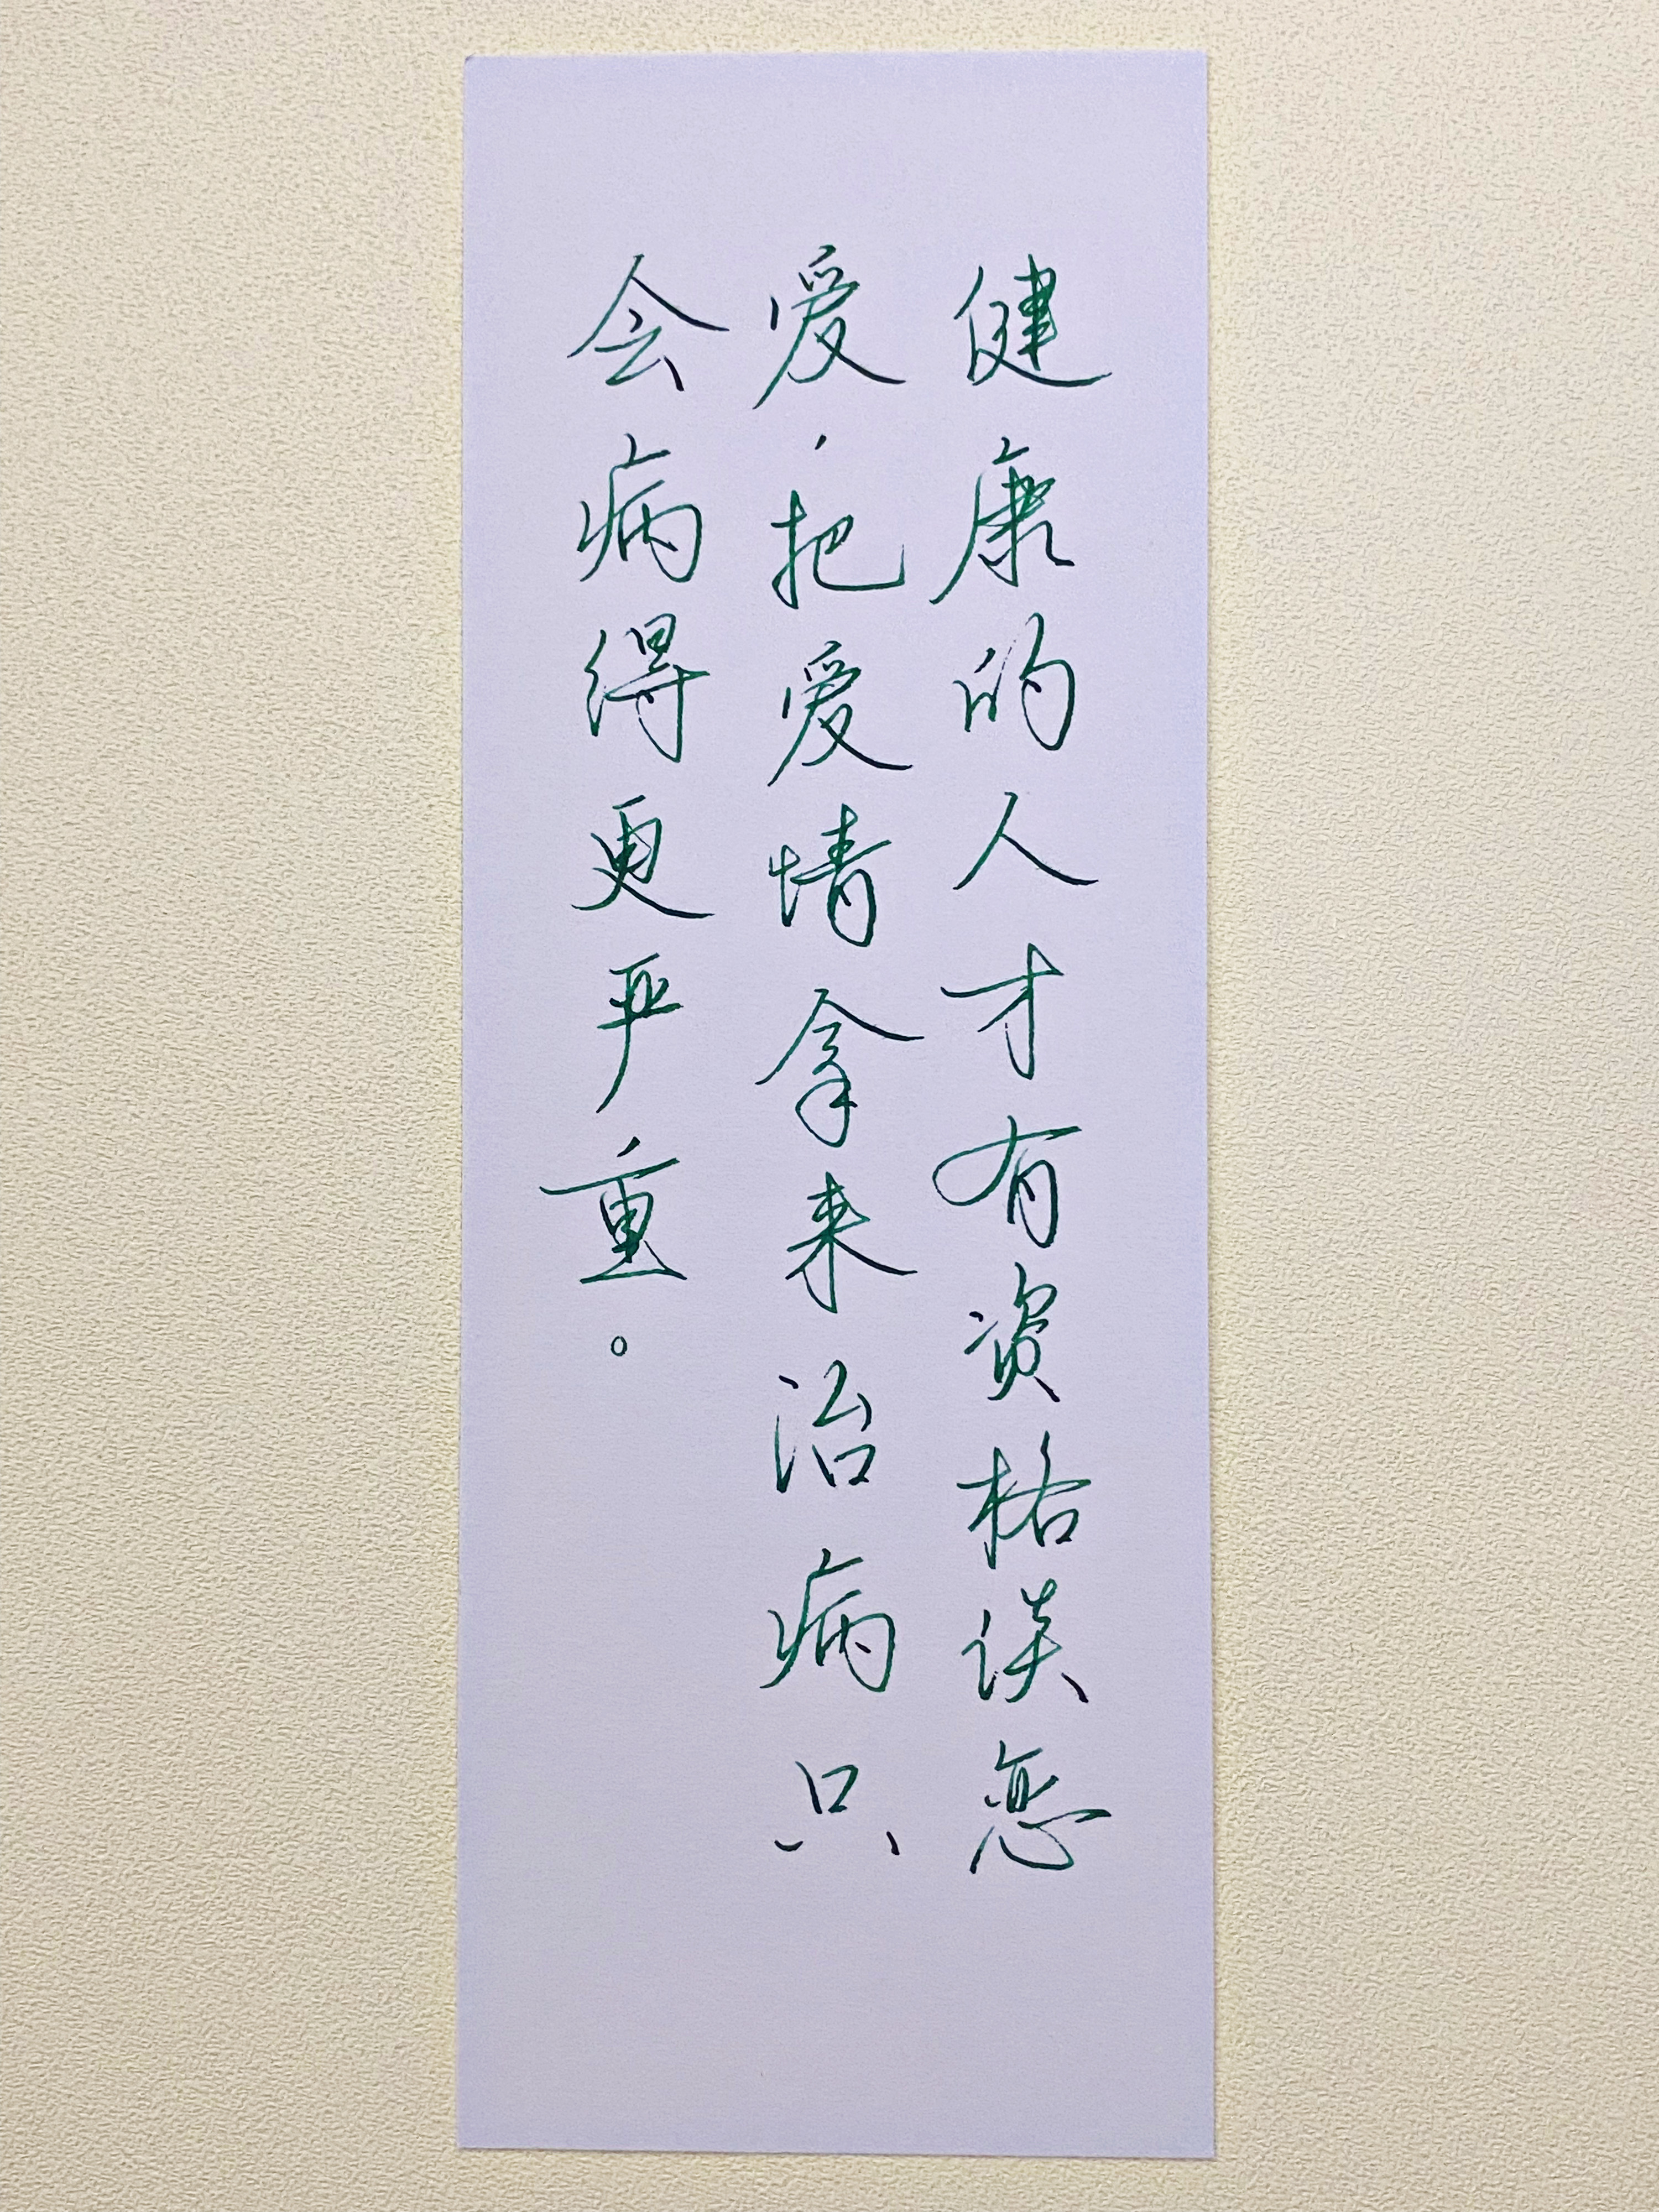 健康的人才有资格谈恋
爱，把爱情拿来治病只
会病得更严重。